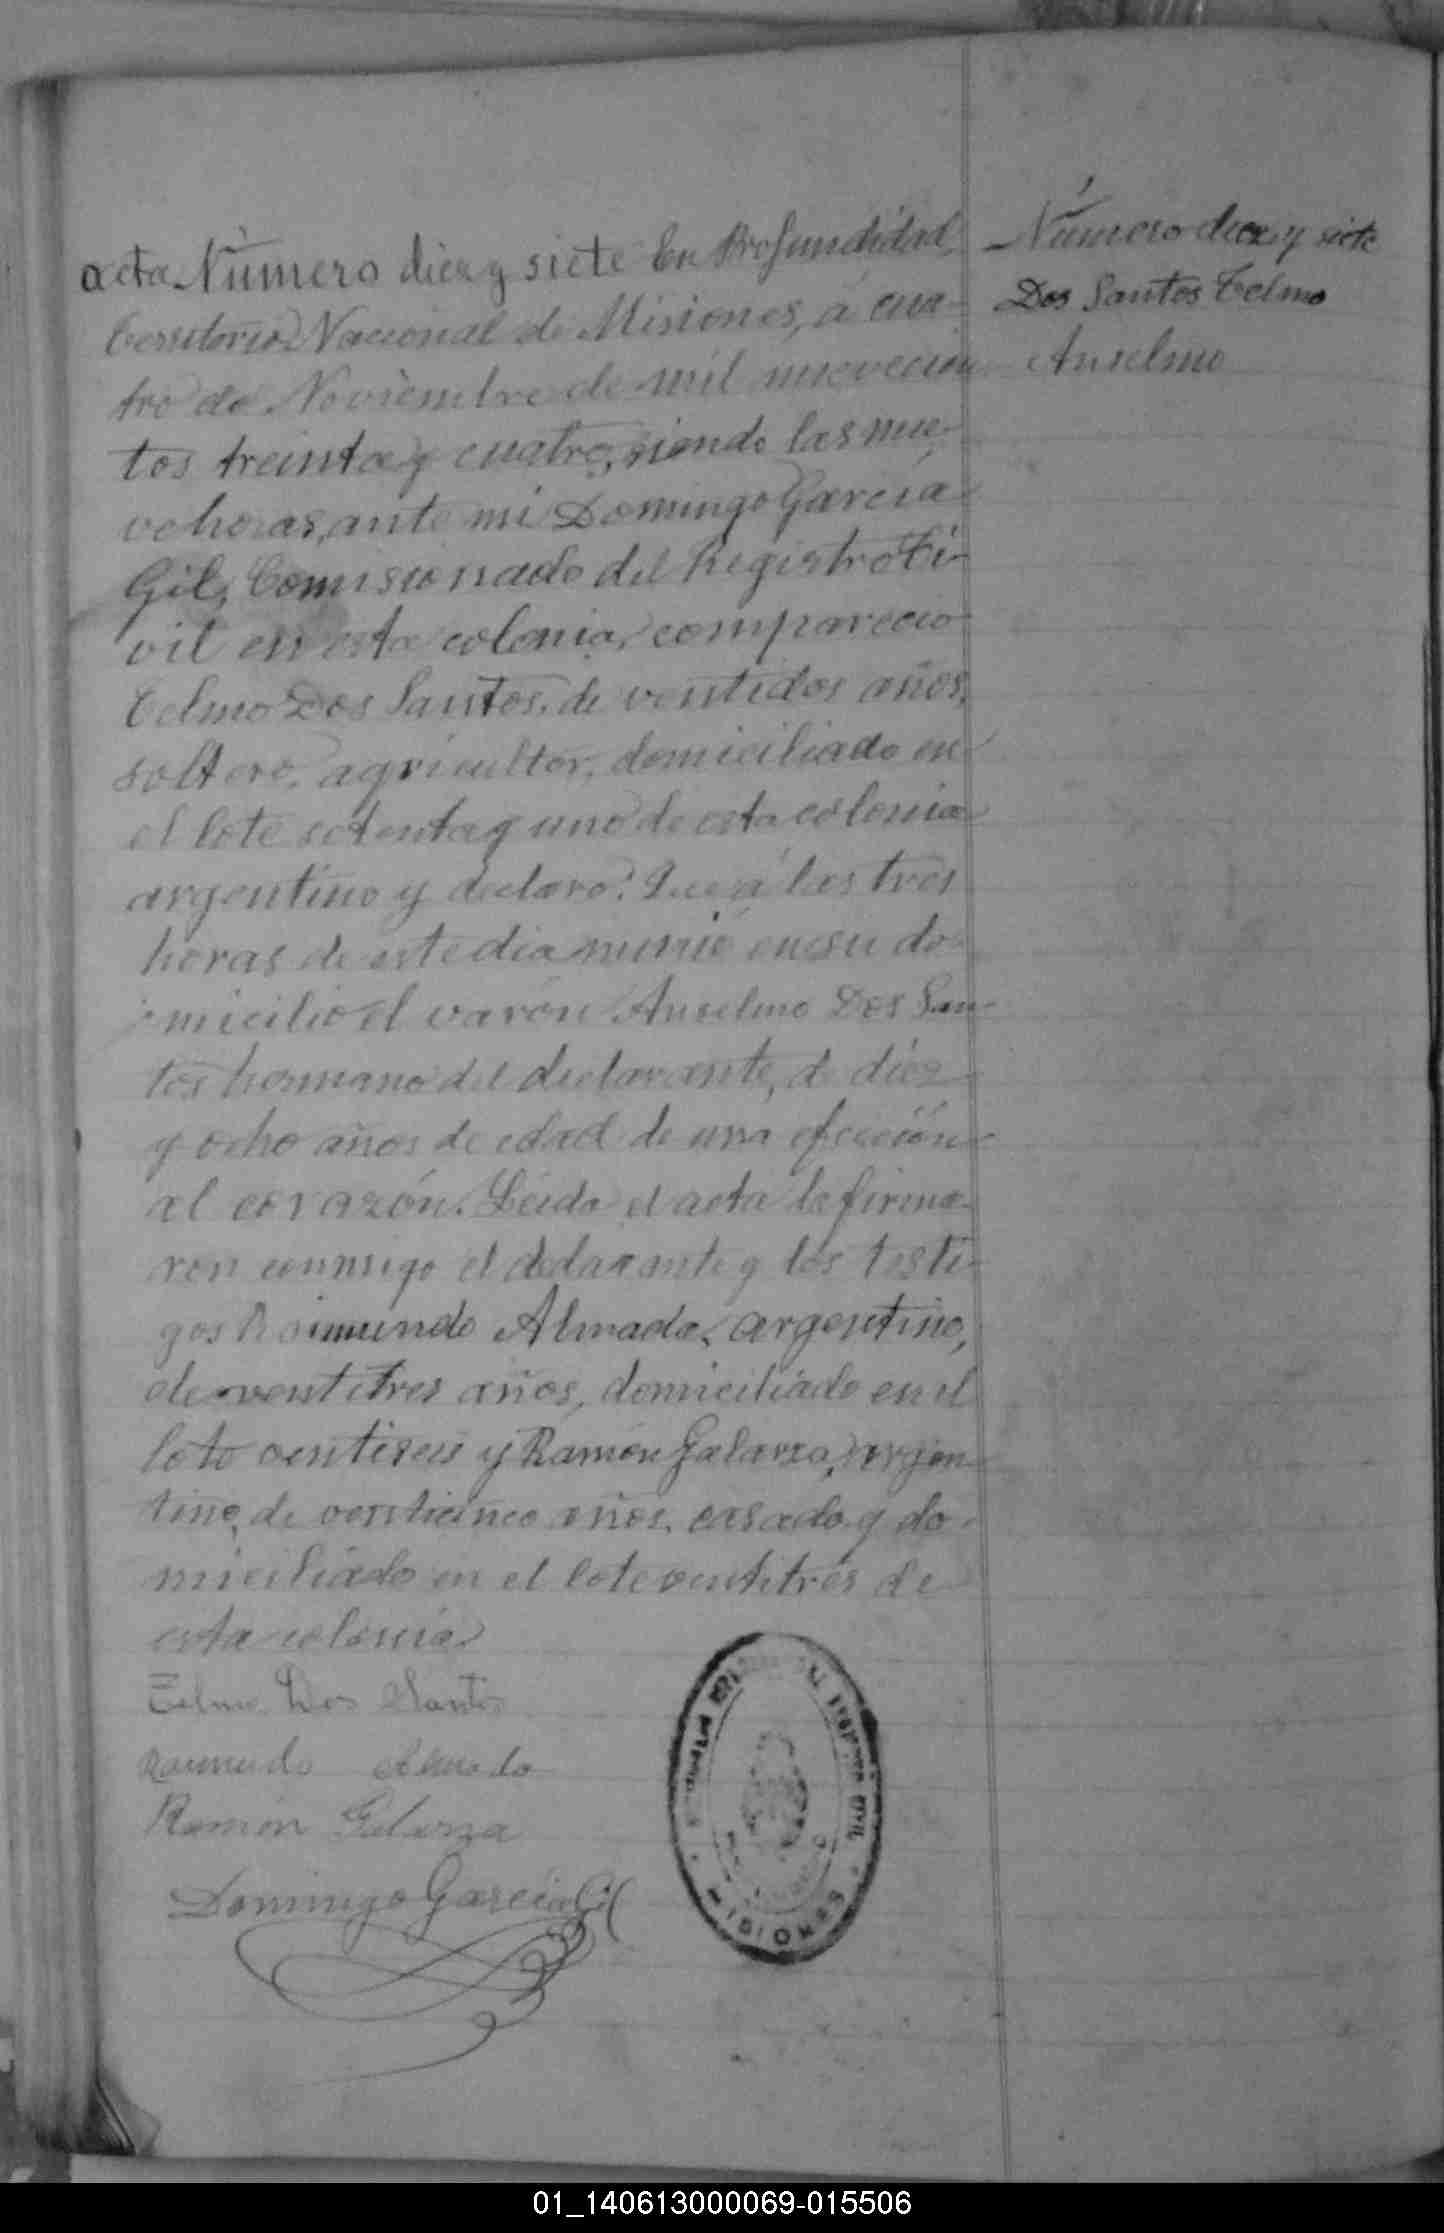 acta Número diez y siete En Profundidad,
Territorio Nacional de Misiones, á cua-
tro de Noviembre de mil novecien
tos treinta y cuatro, siendo las nue-
ve horas, ante mi Domingo García
Gil, Comisionado del Registro Ci-
vil en esta colonia, compareció
Telmo Dos Santos, de ventidos años,
soltero, agricultor, domiciliado en
el lote setenta y uno de esta colonia
argentino y declaro: Que á las tres
horas de este dia murió en su do-
micilio el varón Anselmo Dos San-
tos hermano del declarante, de diez
y ocho años de edad de una afección
al corazón. Leida el acta la firma-
ron conmigo el declarante y los testi-
gos Raimundo Almada, argentino,
de ventitres años, domiciliado en el
lote ventiseis y Ramón Galarza, argen-
tino, de venticinco años, casado y do-
miciliado en el lote ventitrés de
esta colonia
Telmo Dos Santos
Raimundo Almada
Ramón Galarza
Domingo García Gil
Número diez y siete
Dos Santos Telmo
Anselmo
REGISTRO CIVIL
MISIONES
01_140613000069-015506